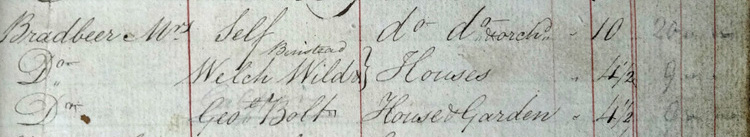 Bradbeer Mrs Self do do & orchd 10 20
Binstead
Do Welch Wilds } Houses " 4½ 9
Do Geo Bolt House & Garden " 4½ 8